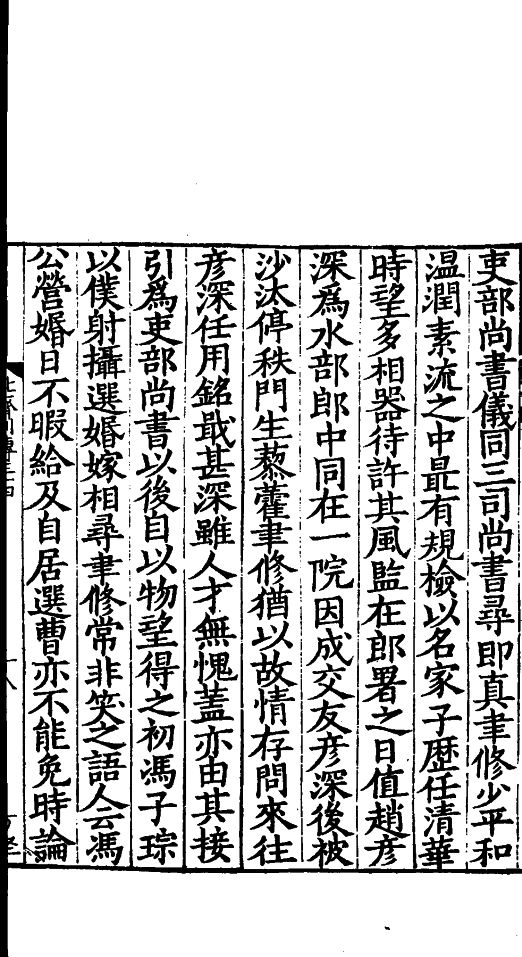 吏部尚書儀同三司尚書尋即真聿修少平和
温潤素流之中最有規檢以名家子歷任清華
時望多相器待許其風監在郎署之日值趙彥
深爲水部郎中同在一院因成交友彥深後被
沙汰停秩門生藜藿聿修猶以故情存問來往
彥深任用銘戢甚深雖人才無愧蓋亦由其接
引爲吏部尚書以後自以物望得之初馮子琮
以僕射攝選婚嫁相尋聿修常非笑之語人云馮
公營婚日不暇給及自居選曹亦不能免時論